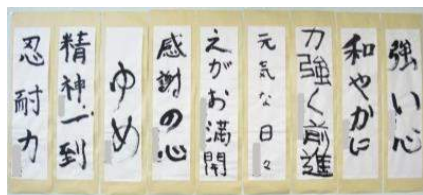 強い心
和やかに
力強く前進
元気な日々
えがお満開
感謝の心
ゆめ
精神一到
忍耐力